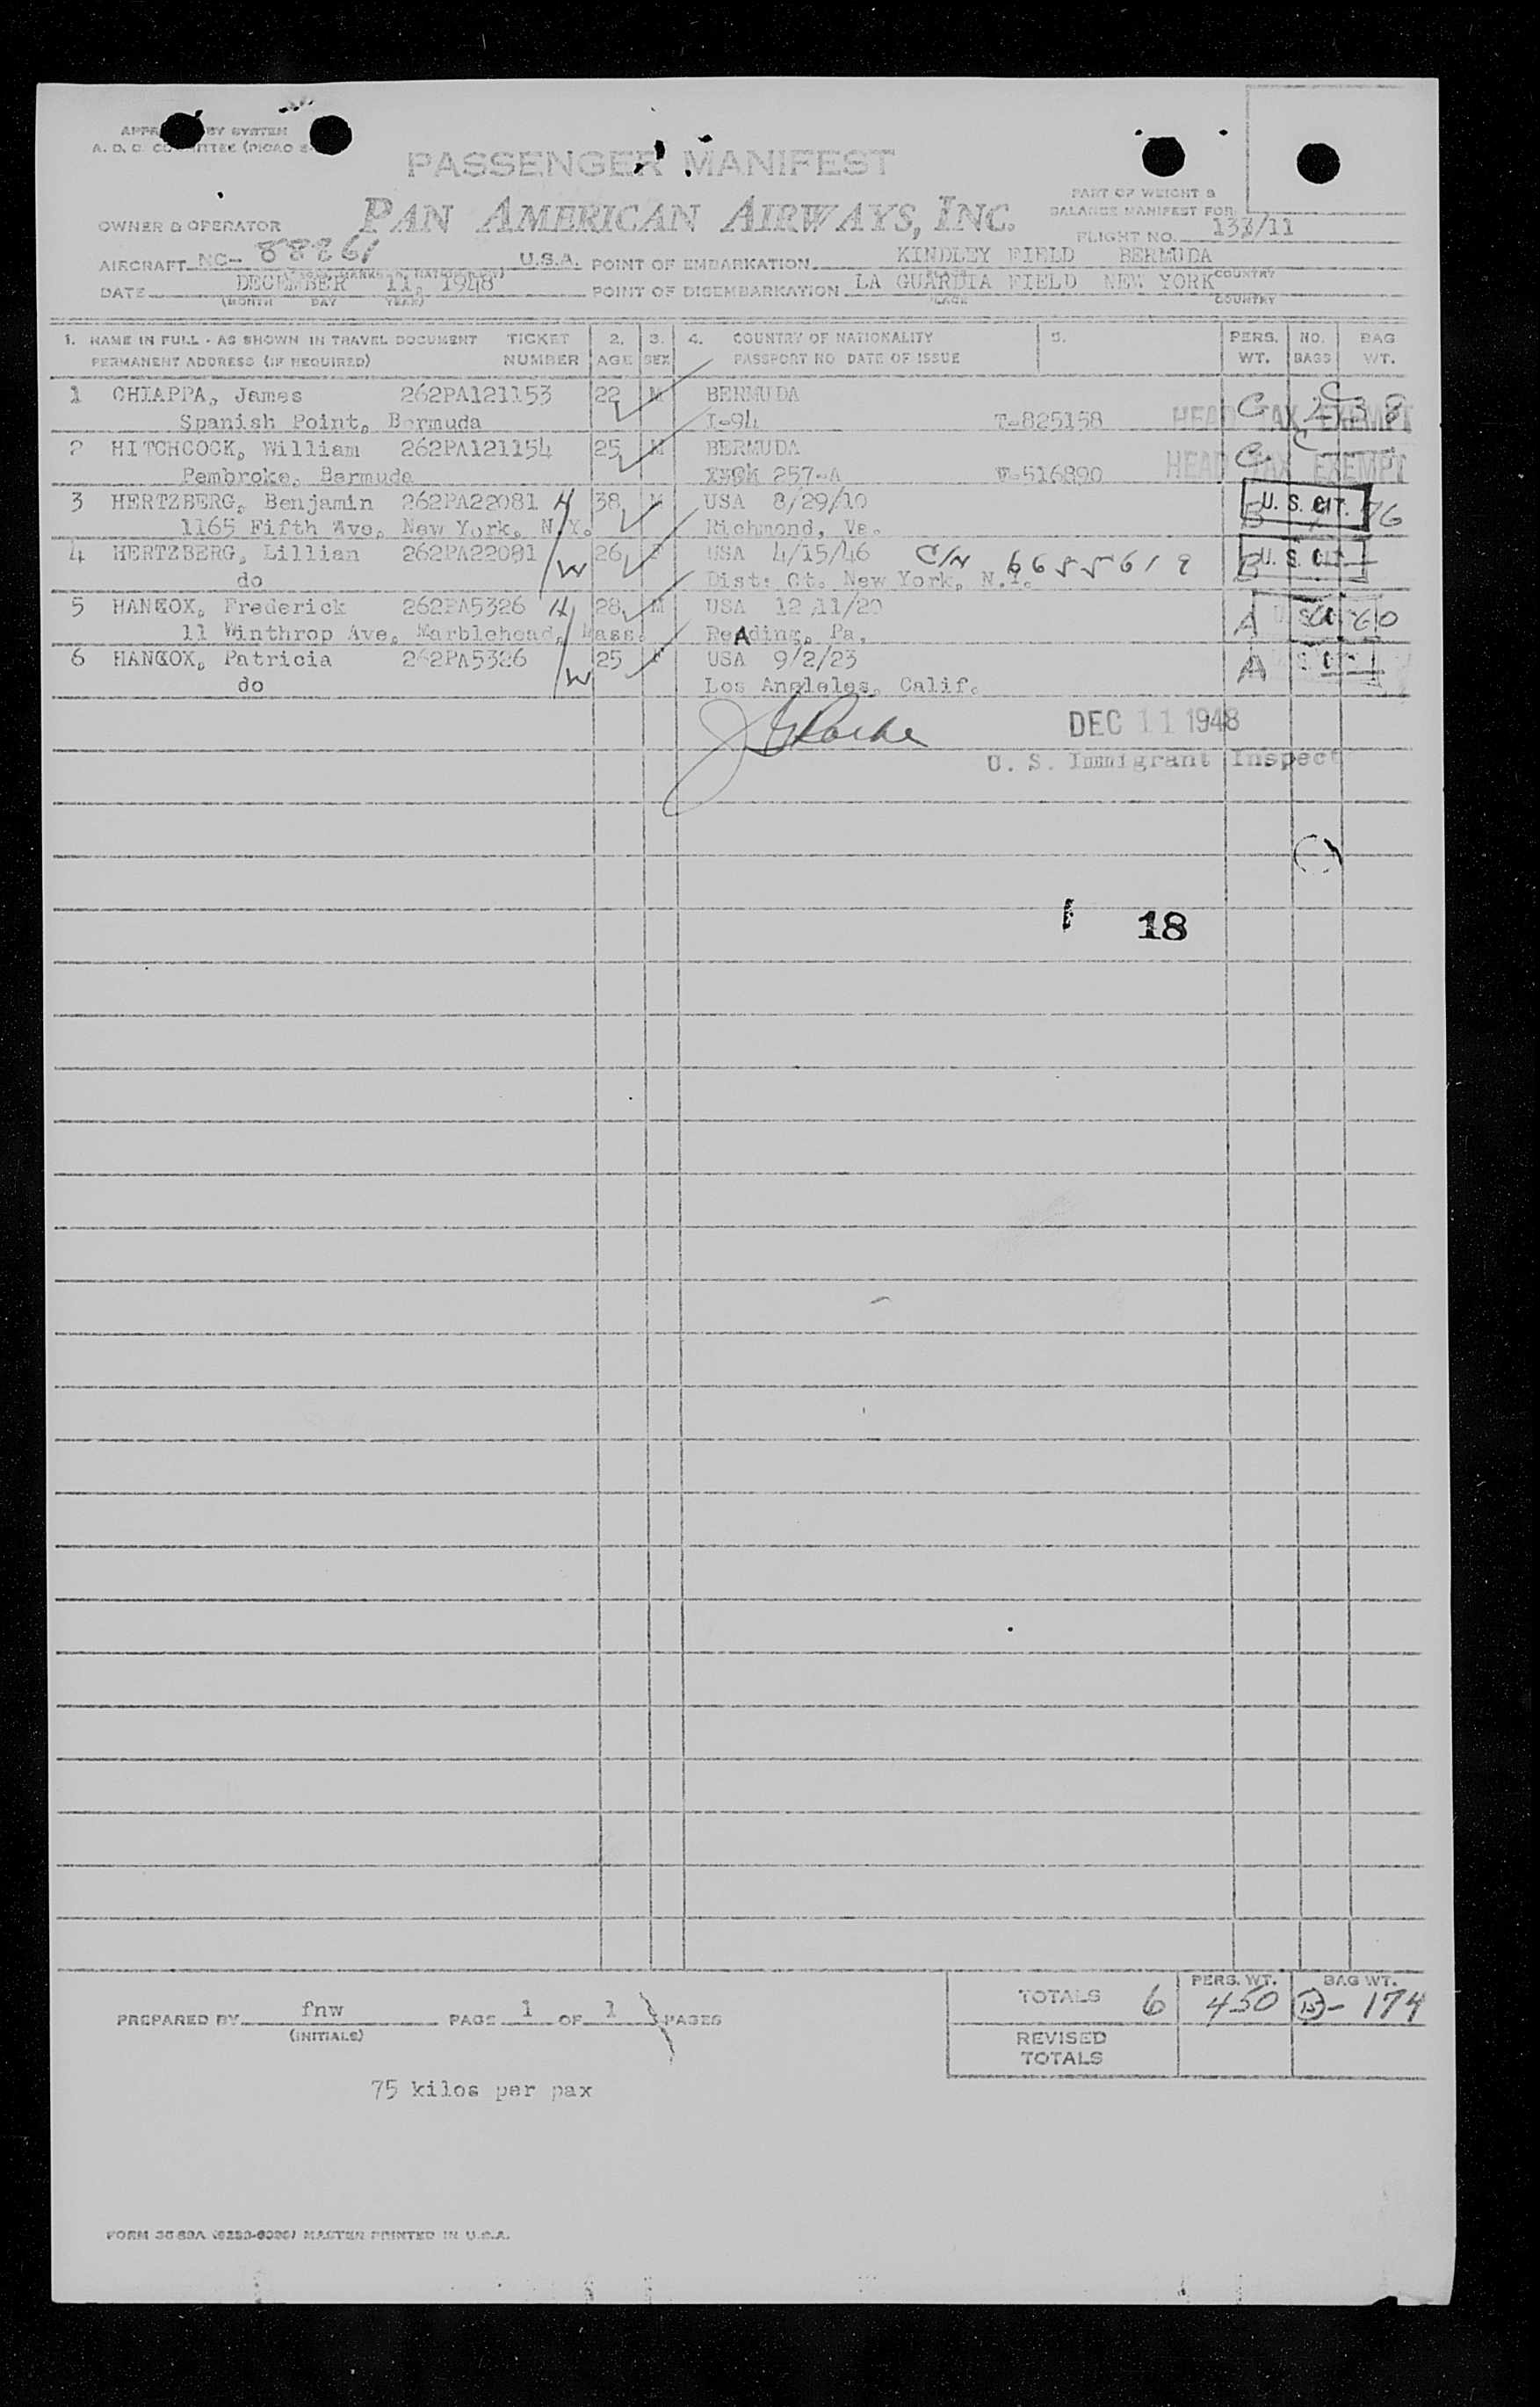 PASSENGER MANIFEST
PART OF WEIGHT &
BALANCE MANIFEST FOR
OWNER & OPERATOR PAN AMERICAN AIRWAYS, INC.
FLIGHT NO. 131/11
AIRCRAFT NC- 88861 U.S.A. POINT OF EMBARKATION KINDLEY FIELD BERMUDA
DATE DECEMBER 11, 1948 POINT OF DISEMBARKATION LA GUARDIA FIELD NEW YORK COUNTRY
(MONTH DAY YEAR) PLACE COUNTRY
1. NAME IN FULL - AS SHOWN IN TRAVEL DOCUMENT TICKET 2. 3. 4. COUNTRY OF NATIONALITY 5. PERS. NO. BAG
PERMANENT ADDRESS (IF REQUIRED) NUMBER AGE SEX PASSPORT NO DATE OF ISSUE WT. BAGS WT.
1 CHIAPPA, James 262PA121153 22 M BERMUDA C 38
Spanish Point, Bermuda I-94 T-825158 HEAD TAX EXEMPT
2 HITCHCOCK, William 262PA121154 25 M BERMUDA C
Pembroke, Bermuda 257-A V-516890 HEAD TAX EXEMPT
3 HERTZBERG, Benjamin 262PA22081 H 38 M USA 8/29/10 B U. S. CIT. 76
1165 Fifth Ave, New York, N.Y. Richmond, Va.
4 HERTZBERG, Lillian 262PA22081 /W 26 F USA 4/15/46 C/N 6655619 B U. S. CIT
do Dist. Ct. New York, N.Y.
5 HANCOX, Frederick 262PA5326 H 28 M USA 12/11/20 A 60
11 Winthrop Ave, Marblehead, Mass. ReAding, Pa.
6 HANCOX, Patricia 262PA5326 /W 25 F USA 9/2/23 A
do Los Angleles, Calif.
DEC 11 1948
U. S. Immigrant Inspect
18
TOTALS 6 PERS. WT. 450 BAG WT. 15 - 174
PREPARED BY fnw PAGE 1 OF 1 PAGES
(INITIALS)
REVISED
TOTALS
75 kilos per pax
MASTER PRINTED IN U.S.A.